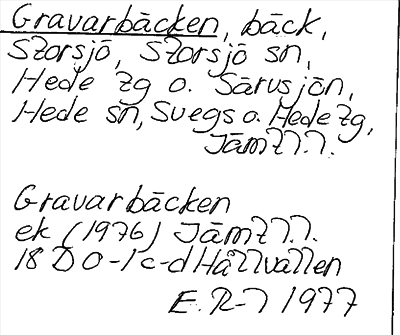 Gravarbäcken, bäck,
Storsjö, Storsjö sn,
Hede tg o. Särvsjön,
Hede sn, Svegs o. Hede tg,
Jämtl.
Gravarbäcken
ek (1976) Jämtl.
18 D 0-1 c-d Hållvallen
E.R-n 1977